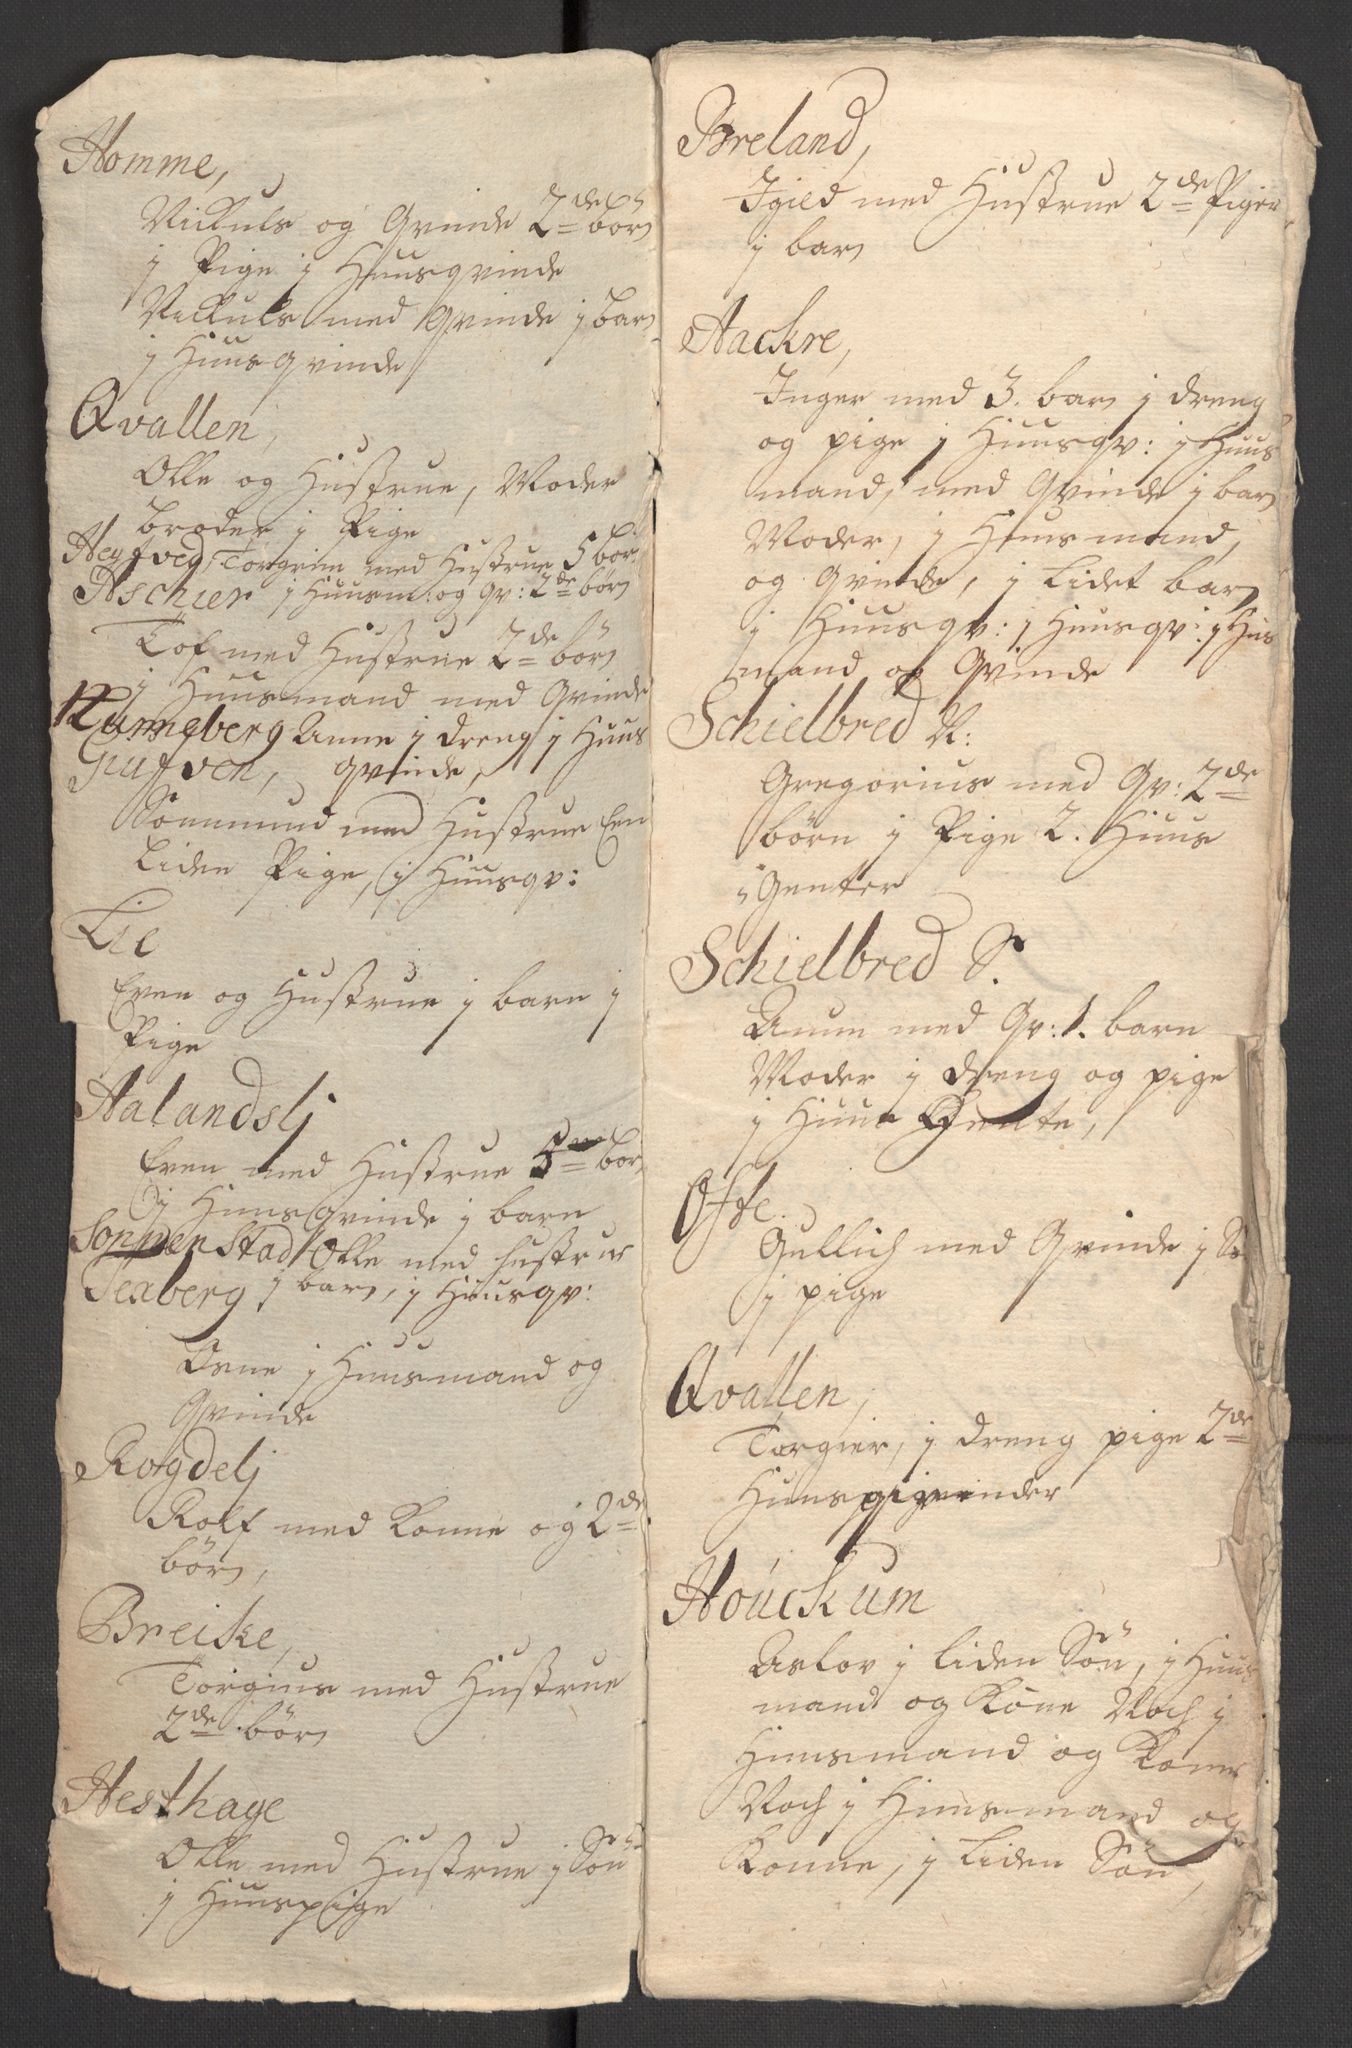 Homme,
Nickuls og Qvinde 2de börn
j Pige j Huusqvinde
Nickuls med Qvinde j barn
j Huusqvinde
Qvallen,
Olle og Hustrue, Moder
broder j Pige
Torgrim med Hustrue 5 börn
Aschier j Huusm: og Qv: 2de börn
Tof med Hustrue 2de börn
j Huusmand med Qvinde
Anne j dreng j Huus
qvinde,
Sommund med Hustrue Een
liden Pige, j Huusqv:
Lie
Even og Hustrue j barn j
Pige
Aalandslj
Even med Hustrue 5 börn
j Huusqvinde j barn
Sonnenstad Olle med hustrue
Sexberg j barn, j Huusqv:
Asne j Huusmand og
Qvinde
Rogdelj
Rolf med Konne og 2de
börn,
Breike,
Torgius med Hustrue
2de börn
Hesthage
Olle med Hustrue j Sön
j Huuspige
Breland,
Igild med Hustrue 2de Piger
j barn
Aackre,
Inger med 3. barn j dreng
og pige j Huusqv: j Huus
mand, med Qvinde j barn
Moder, j Huusmand,
og Qvinde, j Lidet barn
j Huusqv: j Huusqv: j Huus
mand og Qvinde
Schielbred N:
Gregorius med Qv: 2de
börn j Pige 2. Huus
Genter
Schielbred S.
Anun med Qv: 1. barn
Moder j dreng og pige
j Huus Gente,
Ofte.
Gullich med Qvinde j
j pige
Qvallen,
Torgier, j dreng pige 2de
Huusqvinder
Houckum
Aslov j liden Sön, j Huus
mand og Kone Noch j
Huusmand og Kone
Noch j Huusmand og
Konne, j Liden Sön,